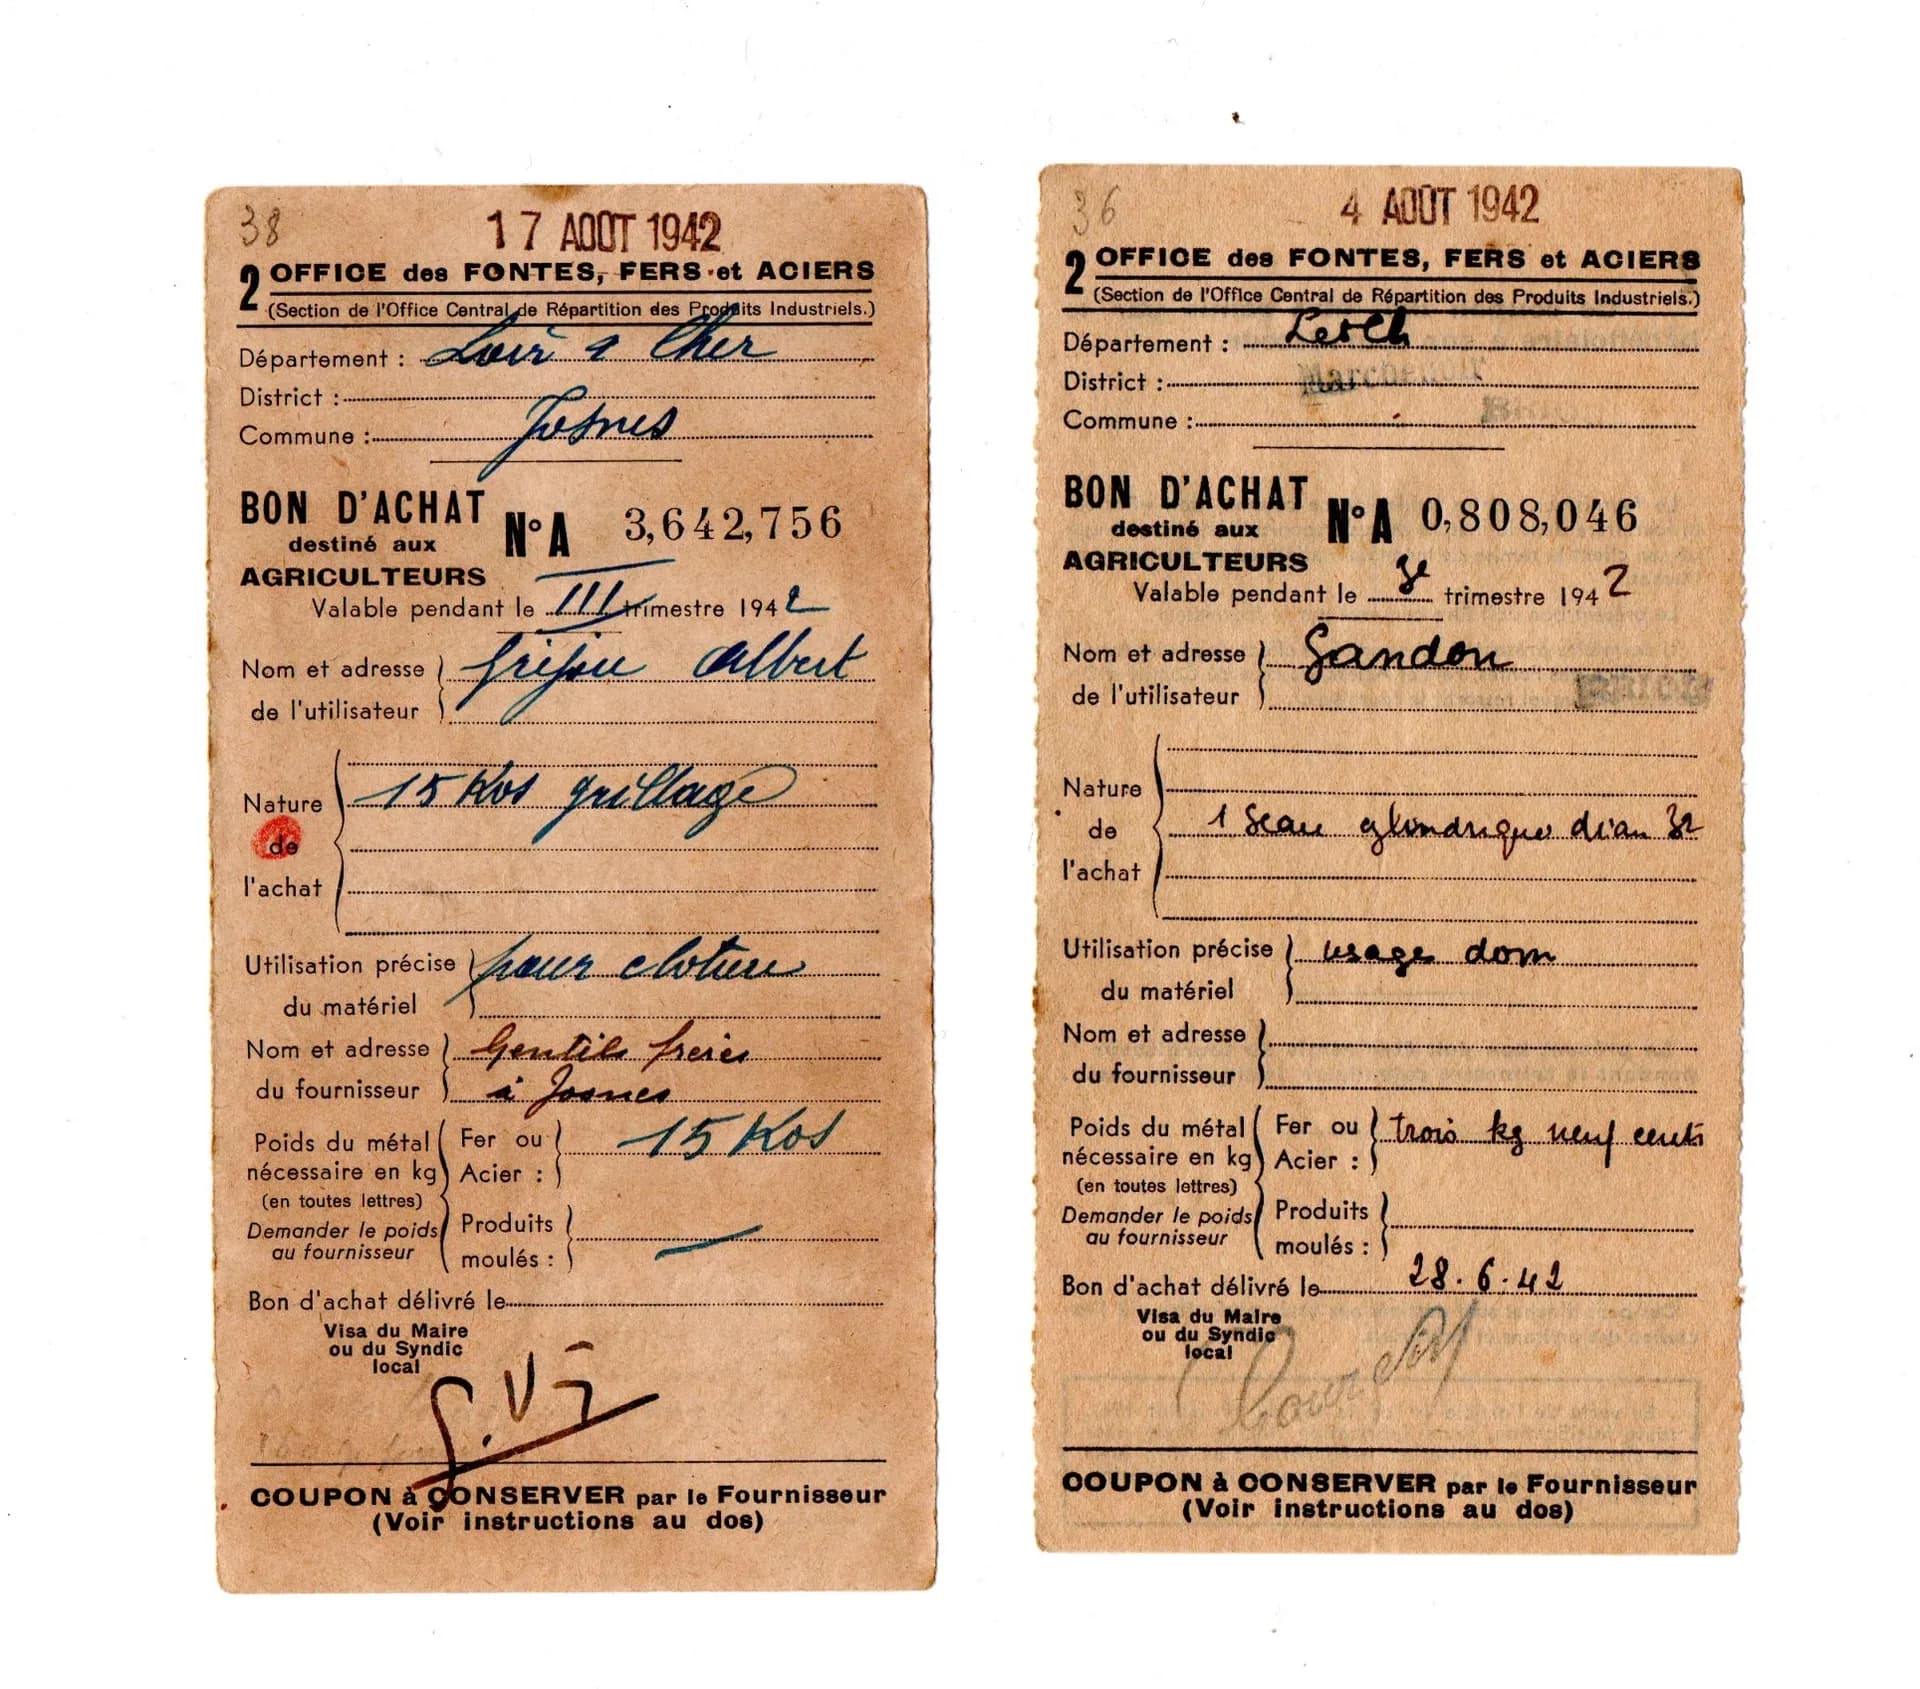 38
17 AOÛT 1942
2 OFFICE des FONTES, FERS et ACIERS
(Section de l'Office Central de Répartition des Produits Industriels.)
Département : Loir & Cher
District :
Commune : Josnes
BON D'ACHAT
destiné aux
AGRICULTEURS
N° A 3,642,756
Valable pendant le III trimestre 1942
Nom et adresse
de l'utilisateur
Albert
Nature
de
l'achat
15 Kos grillage
Utilisation précise
du matériel
pour cloture
Nom et adresse
du fournisseur
Gentils freres
à Josnes
Poids du métal
nécessaire en kg
(en toutes lettres)
Demander le poids
au fournisseur
Fer ou
Acier :
15 Kos
Produits
moulés :
Bon d'achat délivré le
Visa du Maire
ou du Syndic
local
COUPON à CONSERVER par le Fournisseur
(Voir instructions au dos)
36
4 AOÛT 1942
2 OFFICE des FONTES, FERS et ACIERS
(Section de l'Office Central de Répartition des Produits Industriels.)
Département : L et Ch
District : Marchenoir
Commune :
BON D'ACHAT
destiné aux
AGRICULTEURS
N° A 0,808,046
Valable pendant le 3e trimestre 1942
Nom et adresse
de l'utilisateur
Gandon
Nature
de
l'achat
1 Seau cylindrique diam 32
Utilisation précise
du matériel
usage dom
Nom et adresse
du fournisseur
Poids du métal
nécessaire en kg
(en toutes lettres)
Demander le poids
au fournisseur
Fer ou
Acier :
trois kg neuf cents
Produits
moulés :
Bon d'achat délivré le 28.6.42
Visa du Maire
ou du Syndic
local
COUPON à CONSERVER par le Fournisseur
(Voir instructions au dos)